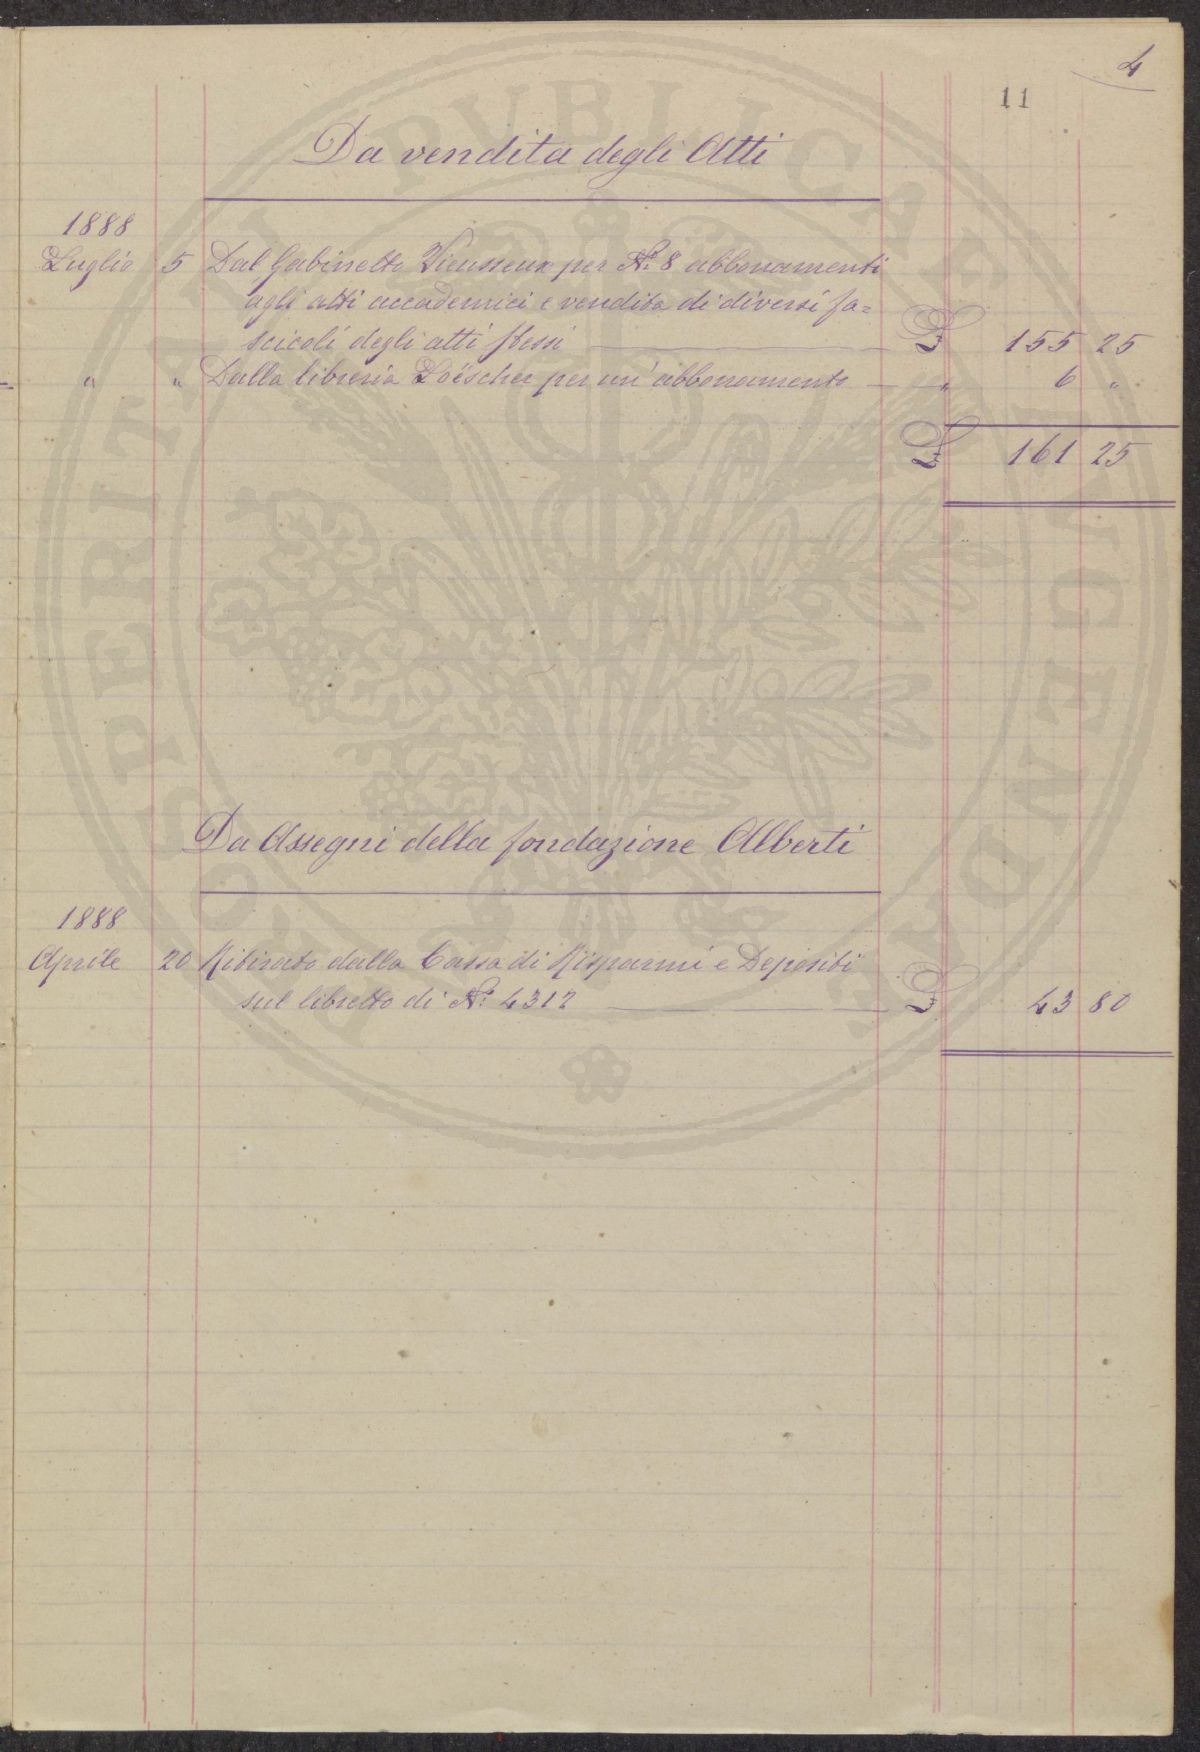 4
11
Da vendita degli Atti
1888
Luglio 5 Dal Gabinetto Vieusseux per N.° 8 abbonamenti
agli atti accademici e vendita di diversi fa=
scicoli degli atti stessi £ 155 25
" " Dalla libreria Loëscher per un'abbonamento " 6 "
£ 161 25
Da Assegni della fondazione Alberti
1888
Aprile 20 Ritirato dalla Cassa di Risparmi e Depositi
sul libretto di N.° 4312 £ 43 80
PROSPERITATI PVBLICAE AVGENDAE